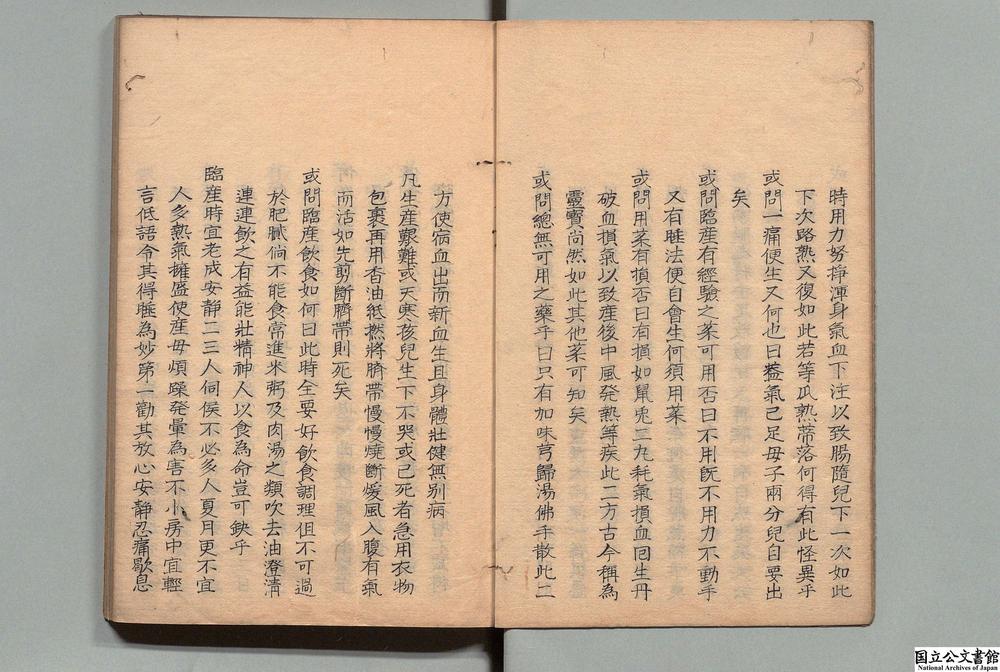 時用力努掙渾身氣血下注以致腸隨兒下一次如此
下次路熟又復如此若等瓜熟蒂落何得有此怪異乎
或問一痛便生又何也曰蓋氣已足母子兩分兒自要出
矣
或問臨産有經驗之薬可用否曰不用既不用力不動手
又有睡法便自會生何須用薬
或問用薬有損否曰有損如鼠兎二丸耗氣損血回生丹
破血損氣以致産後中風発熱等疾此二方古今稱為
靈寶尚然如此其他薬可知矣
或問總無可用之藥乎曰只有加味芎歸湯佛手散此二
方使宿血出而新血生且身體壯健無別病
凡生産艱難或天寒孩兒生下不哭或已死者急用衣物
包裹再用香油紙撚將臍帯慢慢燒斷煖風入腹有氣
而活如先剪斷臍帯則死矣
或問臨産飲食如何曰此時全要好飲食調理但不可過
於肥膩倘不能食常進米粥及肉湯之類吹去油澄清
連連飲之有益能壯精神人以食為命豈可缺乎
臨産時宜老成安靜二三人伺候不必多人夏月更不宜
人多熱氣擁盛使産母煩躁発暈為害不小房中宜輕
言低語令其得睡為妙第一勸其放心安靜忍痛歇息
国立公文書館
National Archives of Japan